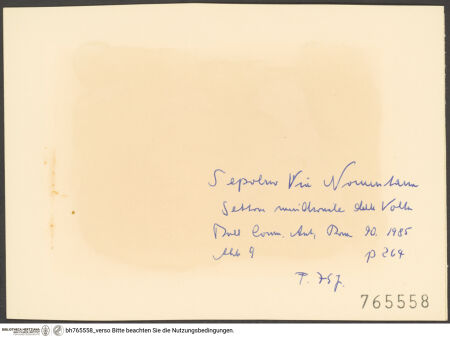 Sepolcro Via Nomentana
Settore meridionale della Volta
Bull Comm. Arch, Rom 90. 1985
Abb 9 p 264
P. 757.
765558
BIBLIOTHECA HERTZIANA bh765558_verso Bitte beachten Sie die Nutzungsbedingungen.